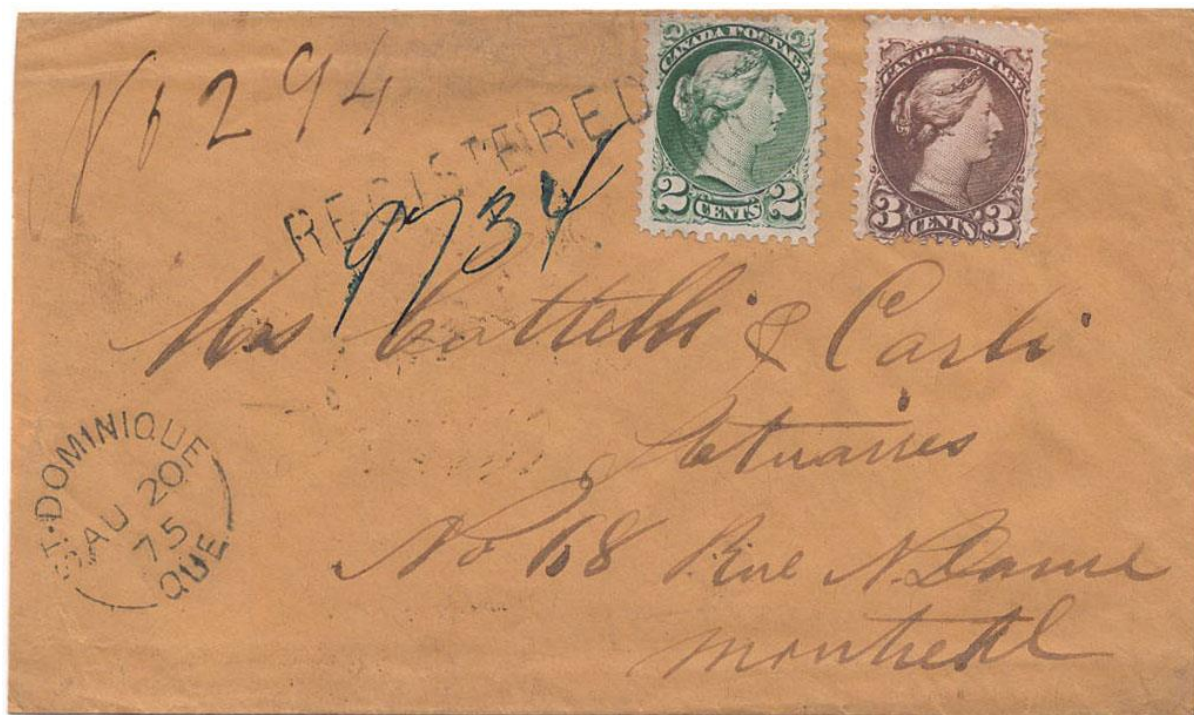 No 294
REGISTERED
9734
CANADA POSTAGE
2 CENTS 2
CANADA POSTAGE
3 CENTS 3
Mrs Cattelli & Carli
Statuaries
No 68 Rue N. Dame
Montreal
ST. DOMINIQUE
AU 20
75
QUE